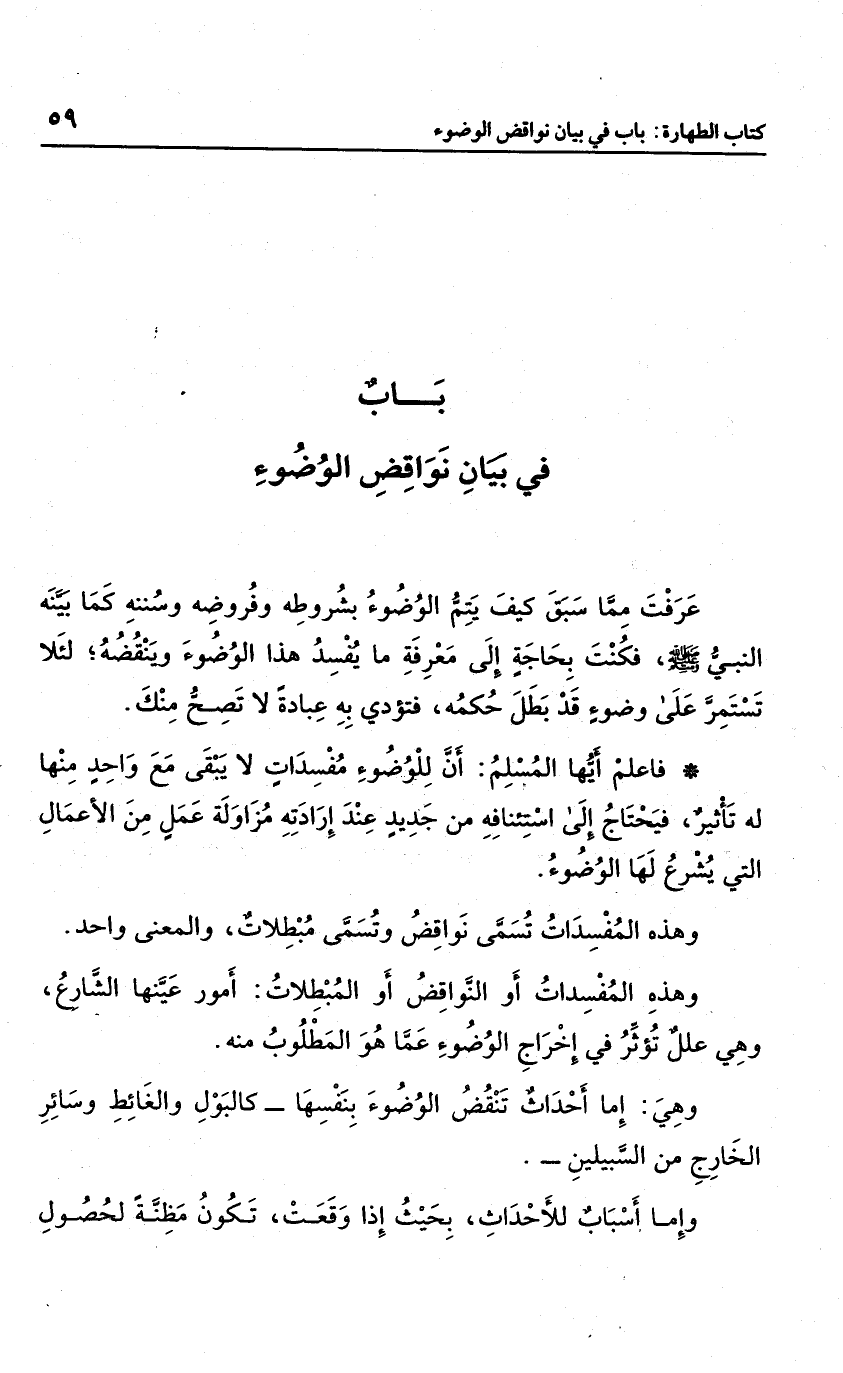 كتاب الطهارة: باب في بيان نواقض الوضوء
٥٩
بَـــابٌ
في بَيَانِ نَوَاقِضِ الوُضُوءِ
عَرَفْتَ مِمَّا سَبَقَ كيفَ يَتِمُّ الوُضُوءُ بشُروطِه وفُروضِه وسُننهِ كَمَا بَيَّنَه
النبيُّ ﷺ، فكُنْتَ بِحَاجَةٍ إِلَى مَعْرِفَةِ ما يُفْسِدُ هذا الوُضُوءَ ويَنْقُضُهُ؛ لئَلا
تَسْتَمِرَّ عَلَىٰ وضوءٍ قَدْ بَطَلَ حُكمُه، فتؤدي بِهِ عِبادةً لا تَصِحُّ مِنْكَ.
* فاعلمْ أَيُّها المُسْلِمُ: أَنَّ لِلْوُضُوءِ مُفْسِدَاتٍ لا يَبْقَى مَعَ وَاحِدٍ مِنْها
له تَأْثيرٌ، فيَحْتَاجُ إِلَىٰ اسْتِئنافِهِ من جَدِيدٍ عِنْدَ إِرَادَتِهِ مُزَاوَلَة عَمَلٍ مِنَ الأعمَالِ
التي يُشْرعُ لَهَا الوُضُوءُ.
وهذه المُفْسِدَاتُ تُسَمَّى نَواقضُ وتُسَمَّى مُبْطِلاتٌ، والمعنى واحد.
وهذهِ المُفْسِداتُ أَو النَّواقِضُ أَو المُبْطِلاتُ: أَمور عَيَّنها الشَّارِعُ،
وهِي عللٌ تُؤثِّرُ في إِخْراجِ الوُضُوءِ عَمَّا هُوَ المَطْلُوبُ منه.
وهِيَ: إِما أَحْدَاثٌ تَنْقُضُ الوُضُوءَ بِنَفْسِهَا ــ كالبَوْلِ والغَائِطِ وسَائِرِ
الخَارِجِ من السَّبيلينِ ــ .
وإِمـا أَسْبَابٌ للأَحْدَاثِ، بِحَيْثُ إِذا وَقَعَـتْ، تَـكُونُ مَظِنَّـةً لحُصُـولِ